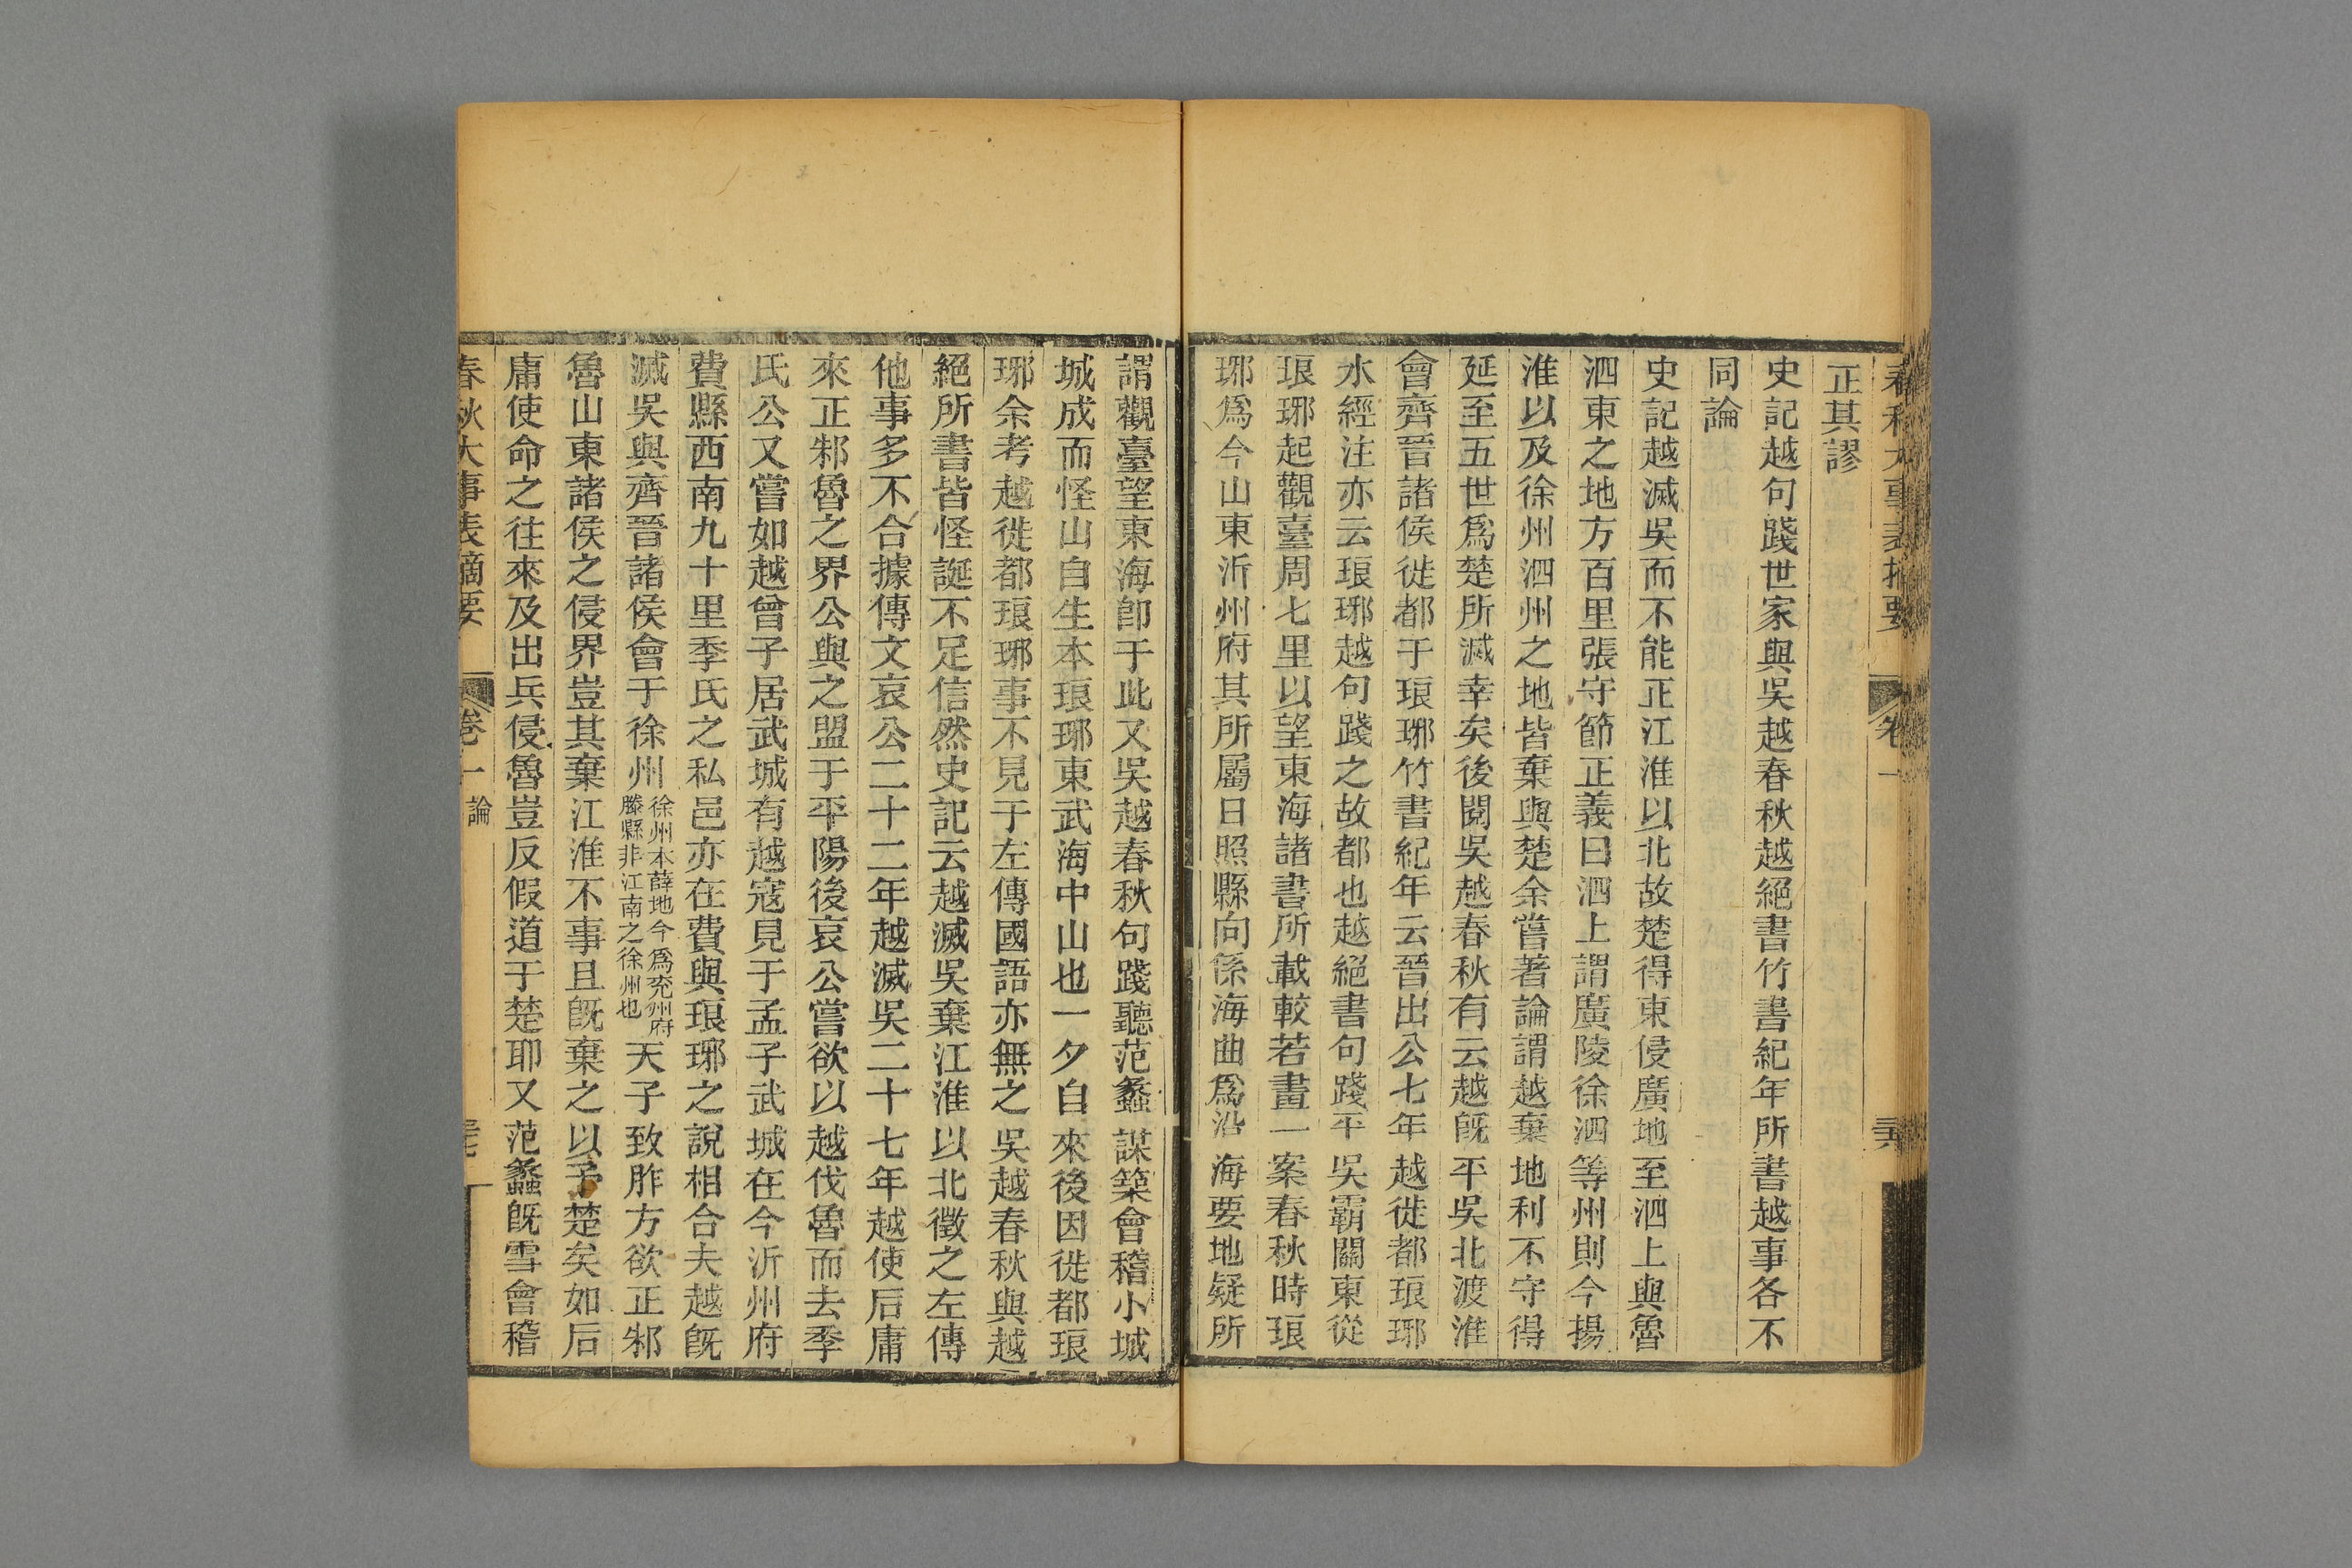 春秋大事表摘要 卷一 三六
正其謬
史記越句踐世家與吳越春秋越絕書竹書紀年所書越事各不
同論
史記越滅吳而不能正江淮以北故楚得東侵廣地至泗上與魯
泗東之地方百里張守節正義曰泗上謂廣陵徐泗等州則今揚
淮以及徐州泗州之地皆棄與楚余嘗著論謂越棄地利不守得
延至五世爲楚所滅幸矣後閱吳越春秋有云越旣平吳北渡淮
會齊晉諸侯徙都于琅琊竹書紀年云晉出公七年越徙都琅琊
水經注亦云琅琊越句踐之故都也越絕書句踐平吳霸關東從
琅琊起觀臺周七里以望東海諸書所載較若畫一案春秋時琅
琊爲今山東沂州府其所屬日照縣向係海曲爲沿海要地疑所
謂觀臺望東海卽于此又吳越春秋句踐聽范蠡謀築會稽小城
城成而怪山自生本琅琊東武海中山也一夕自來後因徙都琅
琊余考越徙都琅琊事不見于左傳國語亦無之吳越春秋與越
絕所書皆怪誕不足信然史記云越滅吳棄江淮以北徵之左傳
他事多不合據傳文哀公二十二年越滅吳二十七年越使后庸
來正邾魯之界公與之盟于平陽後哀公嘗欲以越伐魯而去季
氏公又嘗如越曾子居武城有越寇見于孟子武城在今沂州府
費縣西南九十里季氏之私邑亦在費與琅琊之說相合夫越旣
滅吳與齊晉諸侯會于徐州徐州本薛地今爲兖州府滕縣非江南之徐州也天子致胙方欲正邾
魯山東諸侯之侵界豈其棄江淮不事且旣棄之以予楚矣如后
庸使命之往來及出兵侵魯豈反假道于楚耶又范蠡旣雪會稽
春秋大事表摘要 卷一 論 三七